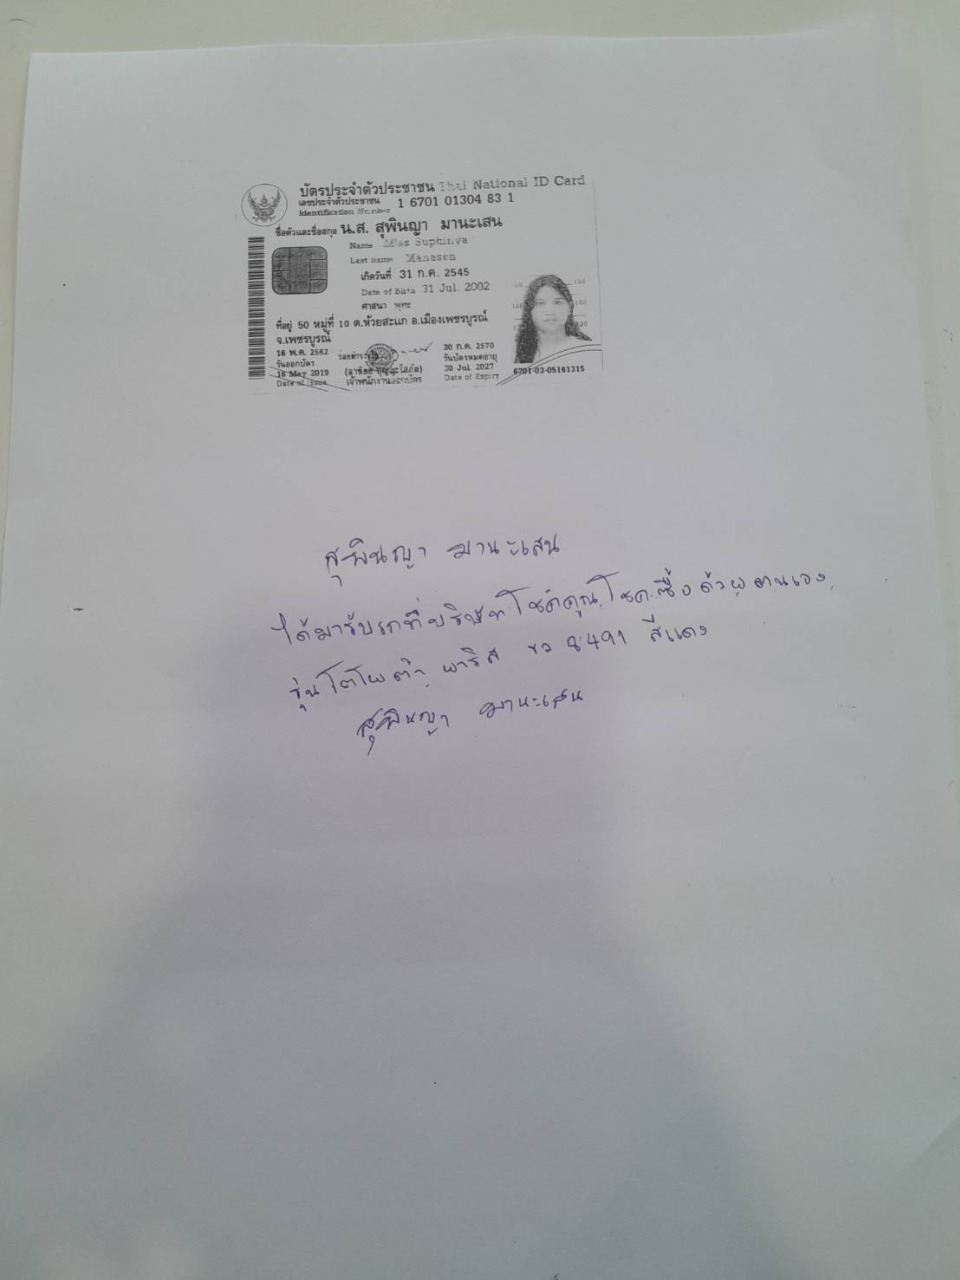 บัตรประจำตัวประชาชน Thai National ID Card
เลขประจำตัวประชาชน 1 6701 01304 83 1
Identification Number
ชื่อตัวและชื่อสกุล น.ส. สุพินญา มานะเสน
Name Miss Suphinya
Last name Manasen
เกิดวันที่ 31 ก.ค. 2545
Date of Birth 31 Jul. 2002
ศาสนา พุทธ
ที่อยู่ 50 หมู่ที่ 10 ต.ห้วยสะแก อ.เมืองเพชรบูรณ์
จ.เพชรบูรณ์
16 พ.ค. 2562
วันออกบัตร
16 May 2019
Date of Issue
เจ้าพนักงานออกบัตร
30 ก.ค. 2570
วันบัตรหมดอายุ
30 Jul. 2027
Date of Expiry
6701-03-05161315
สุพินญา มานะเสน
ได้มารับรถที่บริษัทโชค คูณ โชค ซื้อ ด้วยตนเอง
รุ่น โตโยต้า ยาริส 8491 สีแดง
สุพินญา มานะเสน